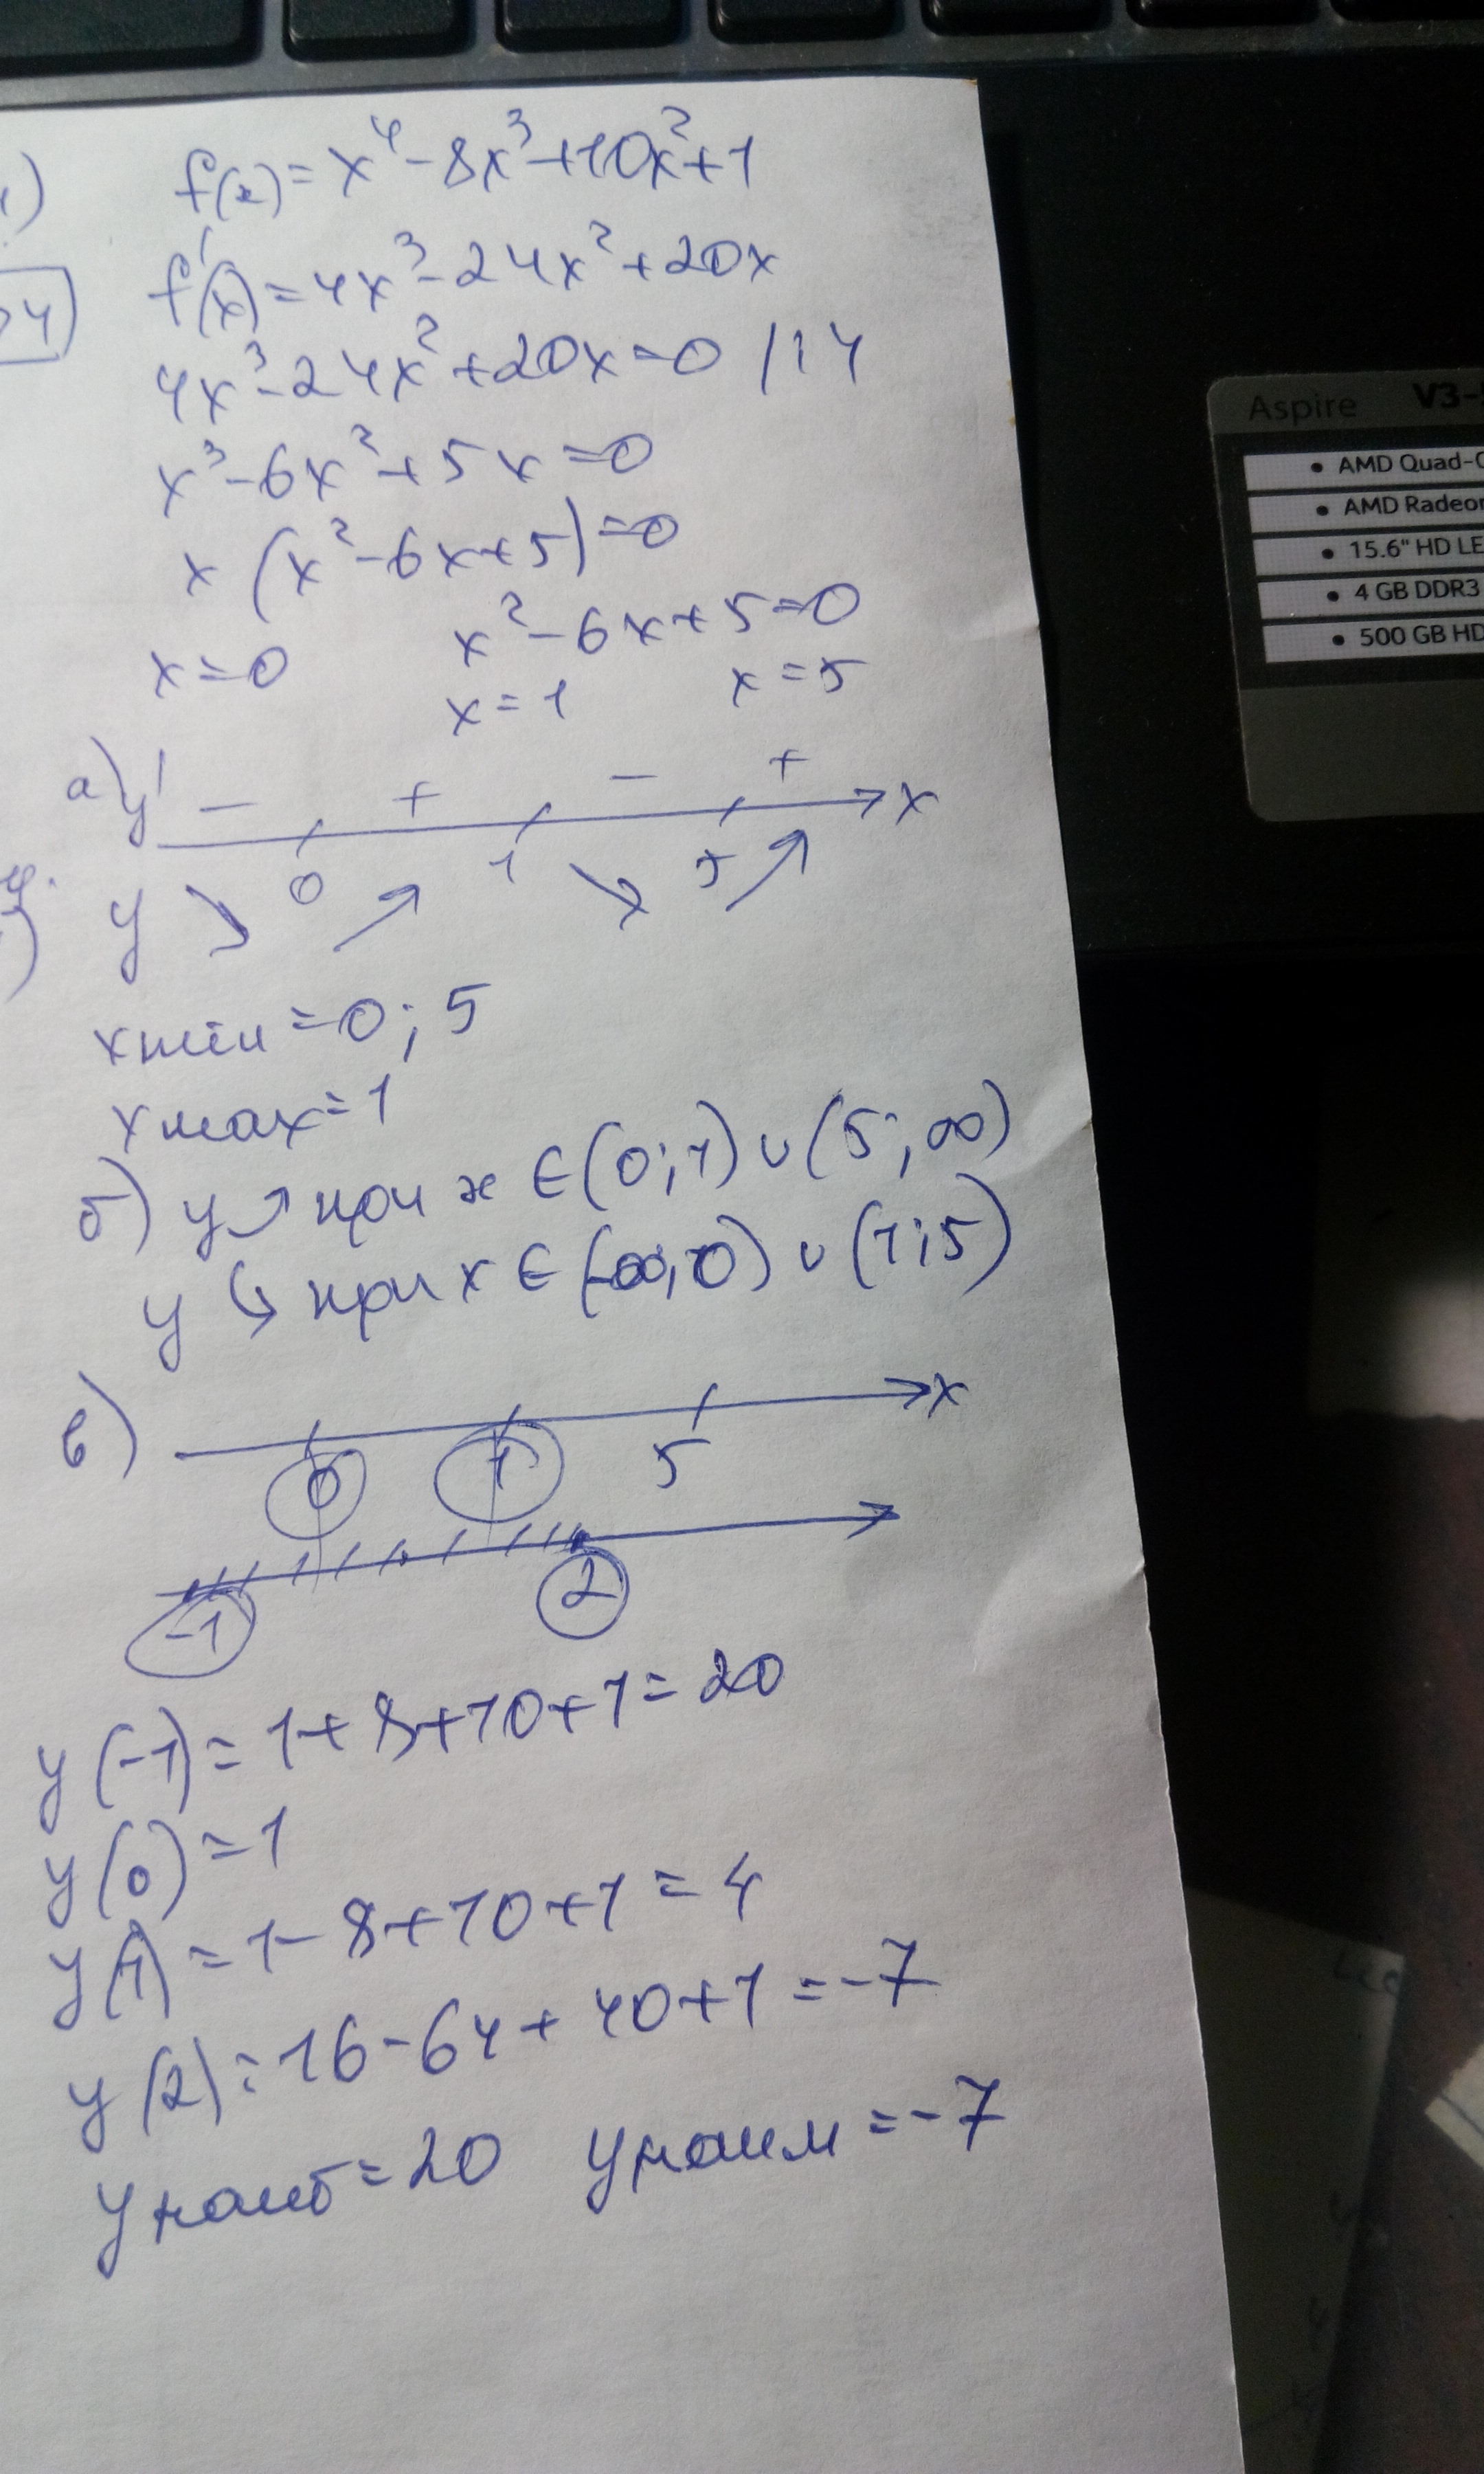 f(x)=x⁴-8x³+10x²+1
f'(x)=4x³-24x²+20x
4x³-24x²+20x=0 /:4
x³-6x²+5x=0
x(x²-6x+5)=0
x=0 x²-6x+5=0
x=1 x=5
а) y' - + - + x
0 1 5
y ↘ ↗ ↘ ↗
xmin=0; 5
xmax=1
б) y ↗ при x ∈ (0;1) ∪ (5; ∞)
y ↘ при x ∈ (-∞;0) ∪ (1;5)
в) x
0 1 5
-1 2
y(-1)=1+8+10+1=20
y(0)=1
y(1)=1-8+10+1=4
y(2)=16-64+40+1=-7
yнаиб=20 yнаим=-7
Aspire V3-
• AMD Quad-C
• AMD Radeon
• 15.6" HD LE
• 4 GB DDR3
• 500 GB HD